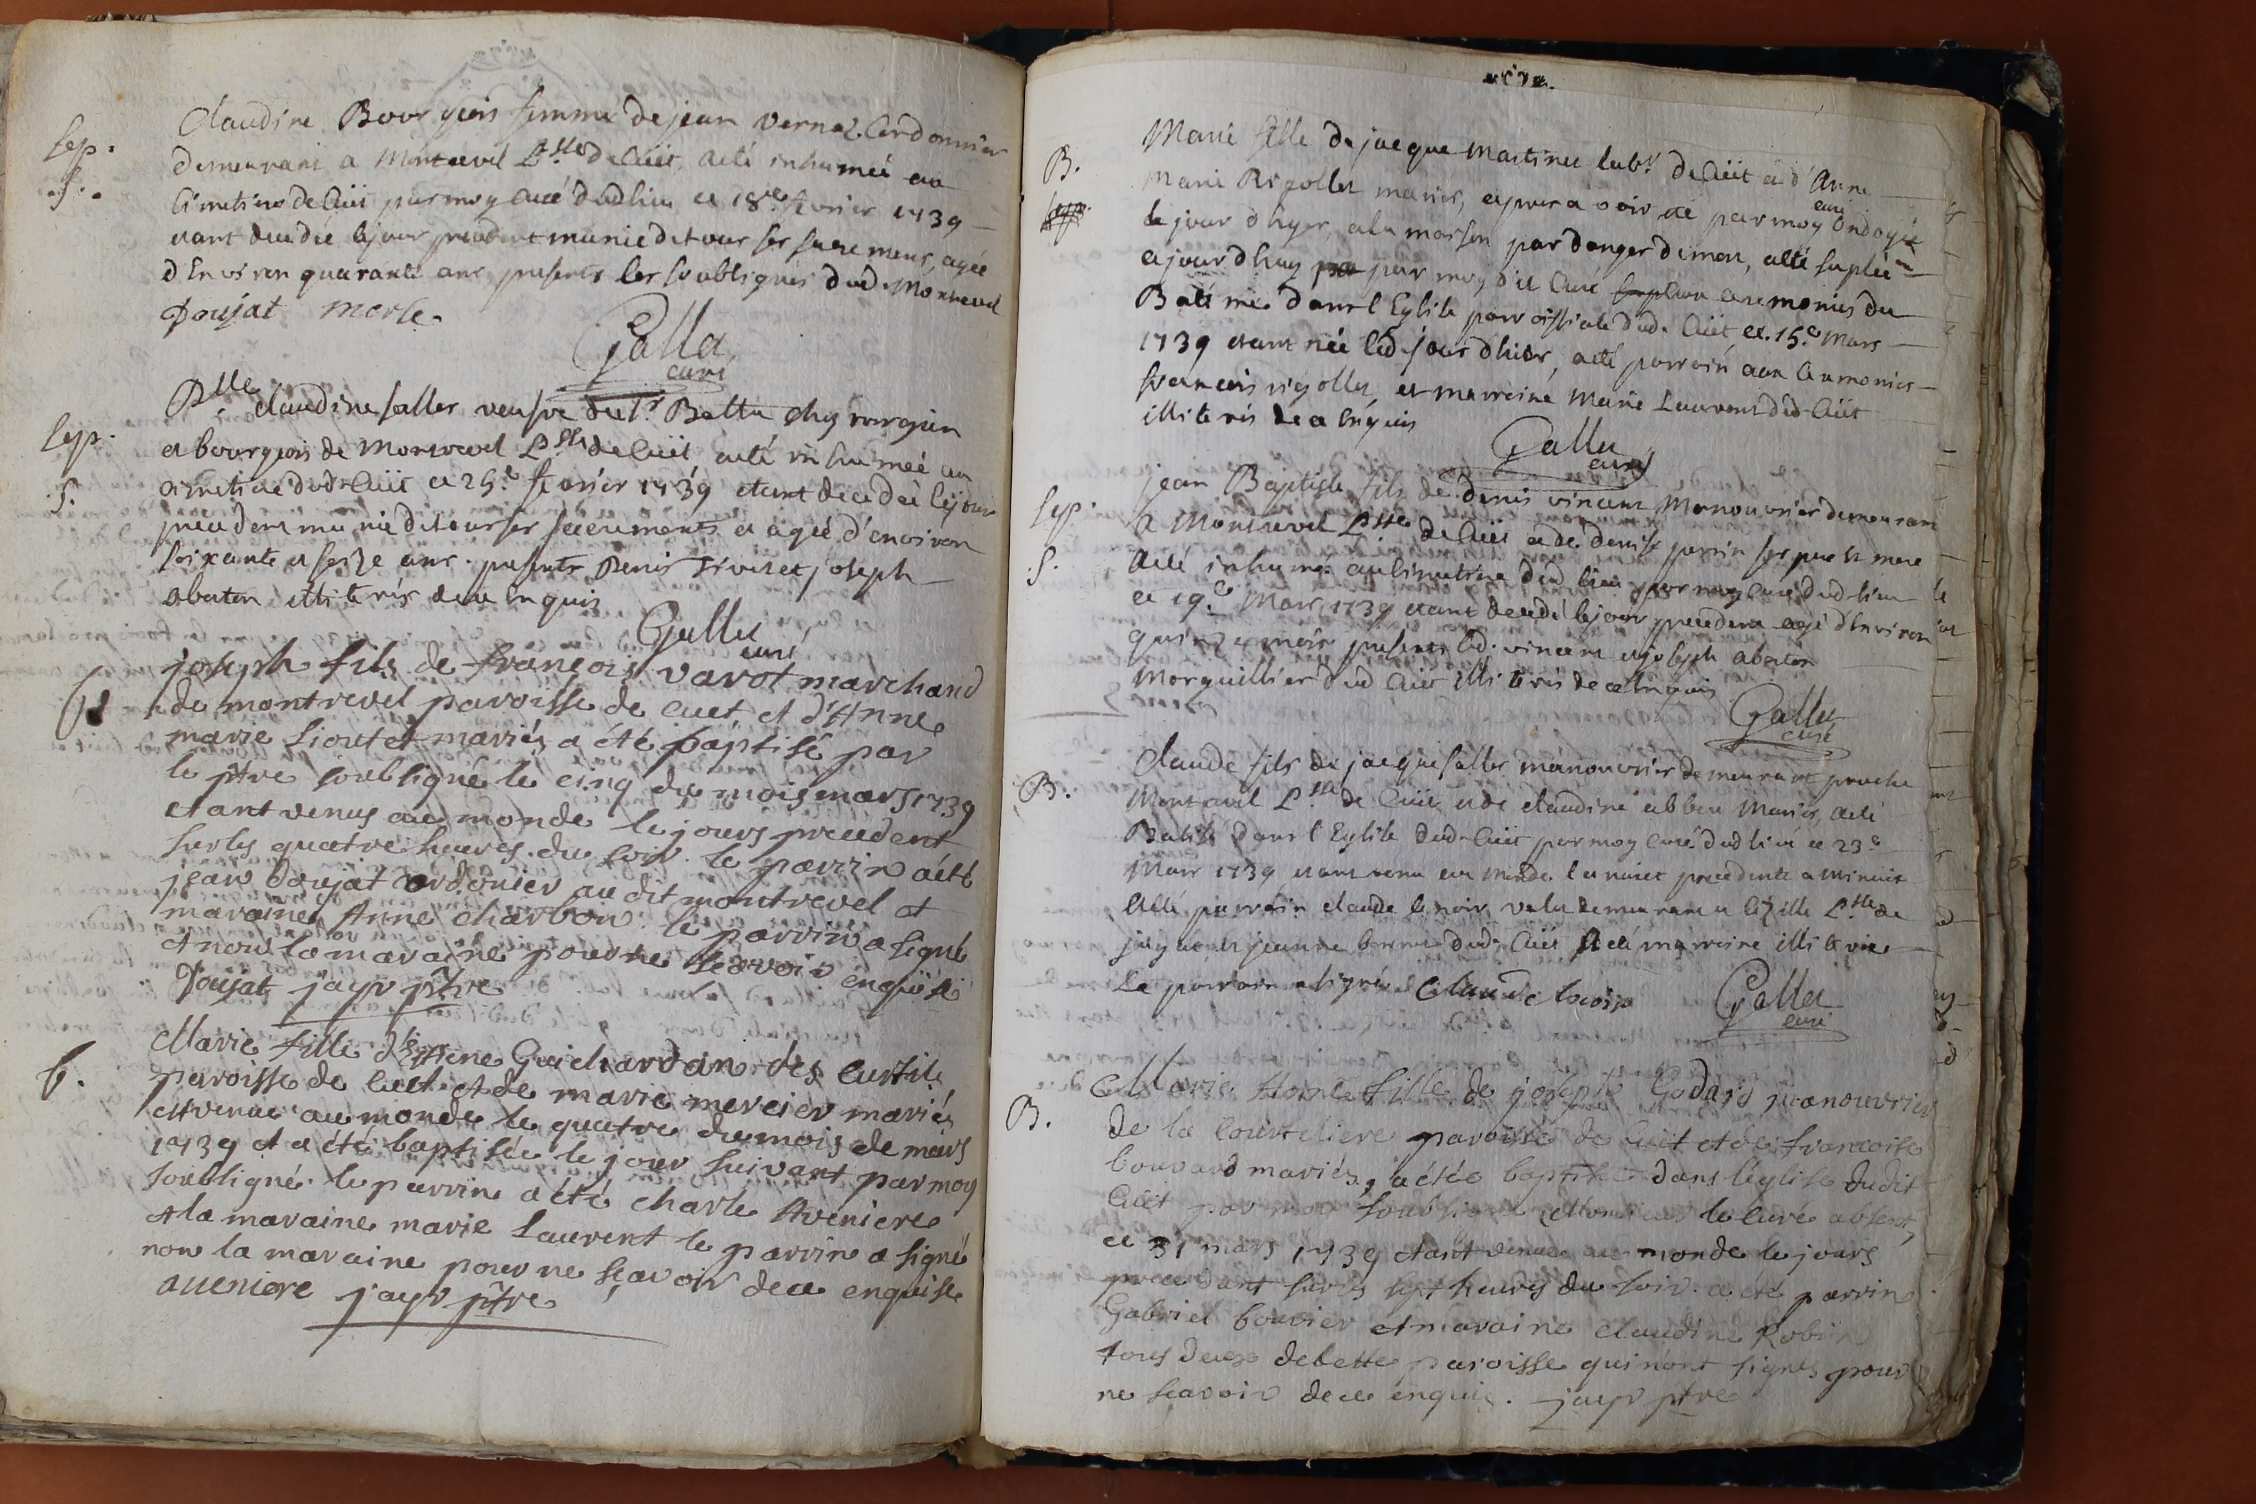 Sep.
.S.
Claudine Bourgeois femme de jean Vernaz Cordonnier
demeurant a Montrevel P.sse de Cüet, aeté inhumeé au
Cimetiere de Cüet par moy Curé dudlieu ce 18.e fevrier 1739
etant decedée le jour precedent munie de tous ses sacremens, ageé
d'Environ quarante ans presents les soubsignés dud. Montrevel
Doujat Merle
Galla
curé
Sep.
.S.
D.lle Claudine saller veufve du s.r Battu chyrurgien
et bourgeois de Montrevel P.sse de Cüet aeté inhumeé au
cimetiere dud. Cüet ce 25.e fevrier 1739 etant decedeé le jour
precedent munie de tous ses sacrements et ageé d'environ
soixante et seize ans. presents Denis Tivit et joseph
abaton illiterés de ce Enquis
Galla
curé
b.
joseph fils de françois varot marchand
de montrevel paroisse de cuet et d'Anne
marie Lioutet mariés a été baptisé par
le ptre soubsigné le cinq du mois mars 1739
etant venus au monde le jours precedent
surles quatre heures du soir. le parrin aété
jean doujat cordonier au dit montrevel et
maraine Anne charbon. le parrin a signé
et non la maraine pour ne scavoir enquise
Doujat jayr ptre
b.
Marie fille d'etiene Guichardan des curtil
paroisse de cuet et de marie mercier mariés
est venue au monde le quatre du mois de mars
1739 et a été baptisée le jour suivant par moy
soubsigné. le parrin a été charle Aveniere
et la maraine marie Laurent le parrin a signé
non la maraine pour ne sçavoir de ce enquise
aueniere jayr ptre
B.
Marie fille de jacque Martinet lab.r de Cüet et d'Anne
Marie Rigollet mariés, apres avoir eté par moy curé Ondoyée
le jour d'hyer, a la maison par danger de mort, aeté supleé
ajourdhuy par moy dit Curé ceremonies du
Bateme dans l'Eglise parroissiale dud. Cüet ce. 15.e Mars
1739 etant née led. jour d'hier, aeté parrein aux Ceremonies
francois rigollet, et marreine Marie Laurent dud. Cüet
illiterés de ce Enquis
Galla
curé
Sep.
.S.
jean Baptiste fils de Denis vincent Manouvrier demeurant
a Montrevel P.sse de Cüet et de Denise perrin ses pere et mere
aeté inhumé au Cimetiere dud lieu par moy Curé dud. lieu
ce 19.e Mars 1739 etant decedé le jour precedent agé d'Environ
quinze mois presents led. vincent et joseph abaton
Marguillier dud Cüet illiterés de ce Enquis
Galla
curé
B.
Claude fils de jacque saller manouvrier demeurant proche
Montrevel P.sse de Cüet et de claudine abbeu Mariés, aeté
Batisé dans l'Eglise dud. Cüet par moy Curé dudlieu ce 23.e
Mars 1739 etant venu au Monde la nuict precedente a Minuit
aeté parrein claude lenoir valet demeurant a P.sse de
jayat et jeanne dud. Cüet aeté marreine illiterée
Le parrein a signé Claude lenoir
Galla
curé
B.
Marie Anne fille de joseph Godard manouvrier
de la Courteliere paroisse de Cüet et de francoise
bouvard mariés, a étée baptisée dans l'église dudit
Cüet par moy soubsigné Monsieur le curé absent,
ce 31 mars 1739 etant venue au monde le jours
precedant surles sept heures du soir. a été parrin
Gabriel bouvier et maraine claudine Robin
tous deux de cette paroisse qui n'ont signés pour
ne scavoir de ce enquis. jayr ptre